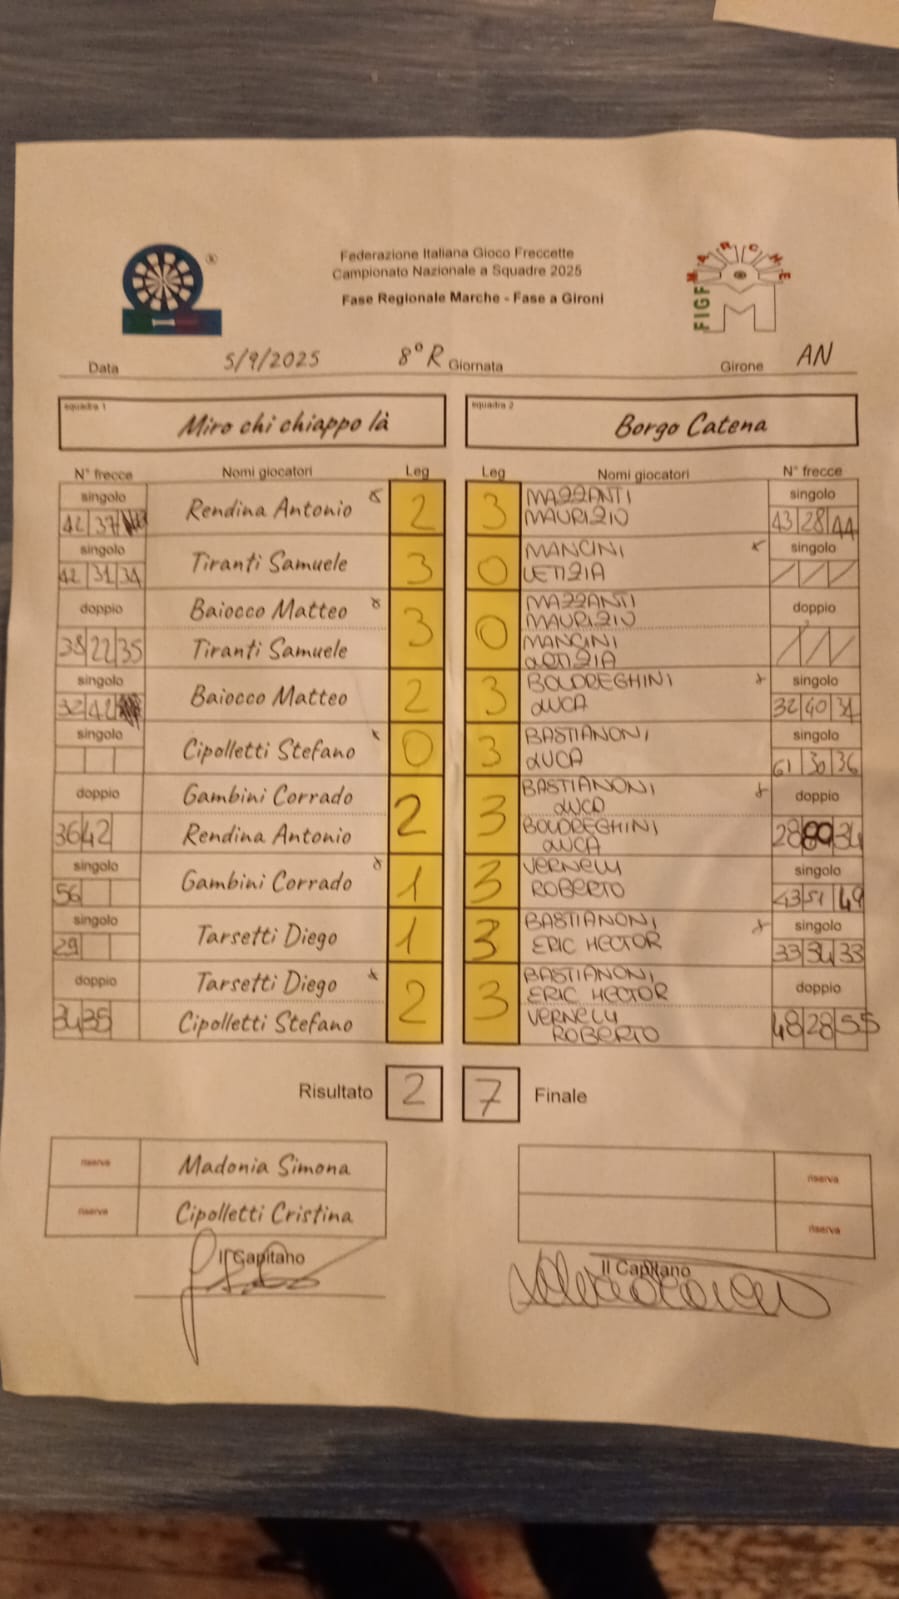 Federazione Italiana Gioco Freccette
Campionato Nazionale a Squadre 2025
Fase Regionale Marche - Fase a Gironi
®
MARCHE
FIGF
M
Data 5/9/2025 8°R Giornata Girone AN
squadra 1 Miro chi chiappo là
squadra 2 Borgo Catena
N° frecce Nomi giocatori Leg Leg Nomi giocatori N° frecce
singolo Rendina Antonio 2 3 MAZZANTI singolo
42 37 MAURIZIO 43 28 44
singolo Tiranti Samuele 3 0 MANCINI singolo
42 31 34 LETIZIA
doppio Baiocco Matteo 3 0 MAZZANTI doppio
MAURIZIO
38 22 35 Tiranti Samuele MANCINI
LETIZIA
singolo Baiocco Matteo 2 3 BOLDREGHINI singolo
32 42 LUCA 32 40 31
singolo Cipolletti Stefano 0 3 BASTIANONI singolo
LUCA 61 30 36
doppio Gambini Corrado 2 3 BASTIANONI doppio
LUCA
36 42 Rendina Antonio BOLDREGHINI 28 34
LUCA
singolo Gambini Corrado 1 3 VERNELLI singolo
56 ROBERTO 43 51 49
singolo Tarsetti Diego 1 3 BASTIANONI singolo
29 ERIC HECTOR 33 34 33
doppio Tarsetti Diego 2 3 BASTIANONI doppio
ERIC HECTOR
34 35 Cipolletti Stefano VERNELLI 48 28 55
ROBERTO
Risultato 2 7 Finale
riserva Madonia Simona riserva
riserva Cipolletti Cristina riserva
Il Capitano Il Capitano